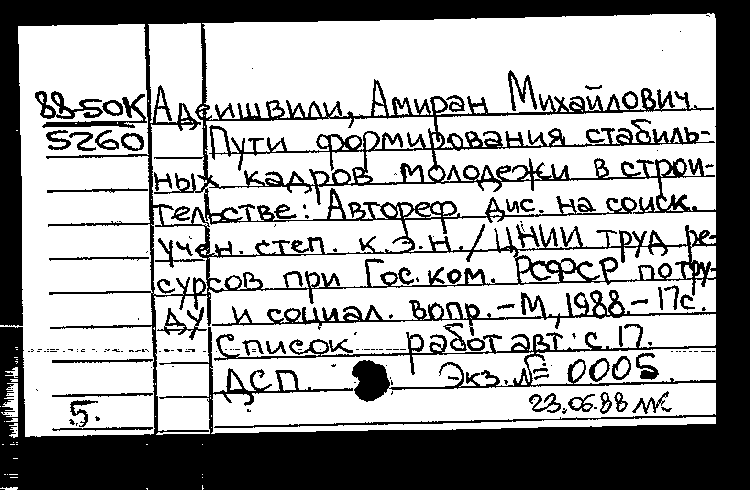 88-50К Адеишвили, Амиран Михайлович.
5260 Пути формирования стабиль-
ных кадров молодежи в строи-
тельстве: Автореф. дис. на соиск.
учен. степ. к.э.н. / ЦНИИ труд ре-
сурсов при Гос. ком. РСФСР по тру-
ду и социал. вопр. – М., 1988. – 17с.
Список работ авт.: с. 17.
ДСП. Экз. № 0005.
5. 23.06.88